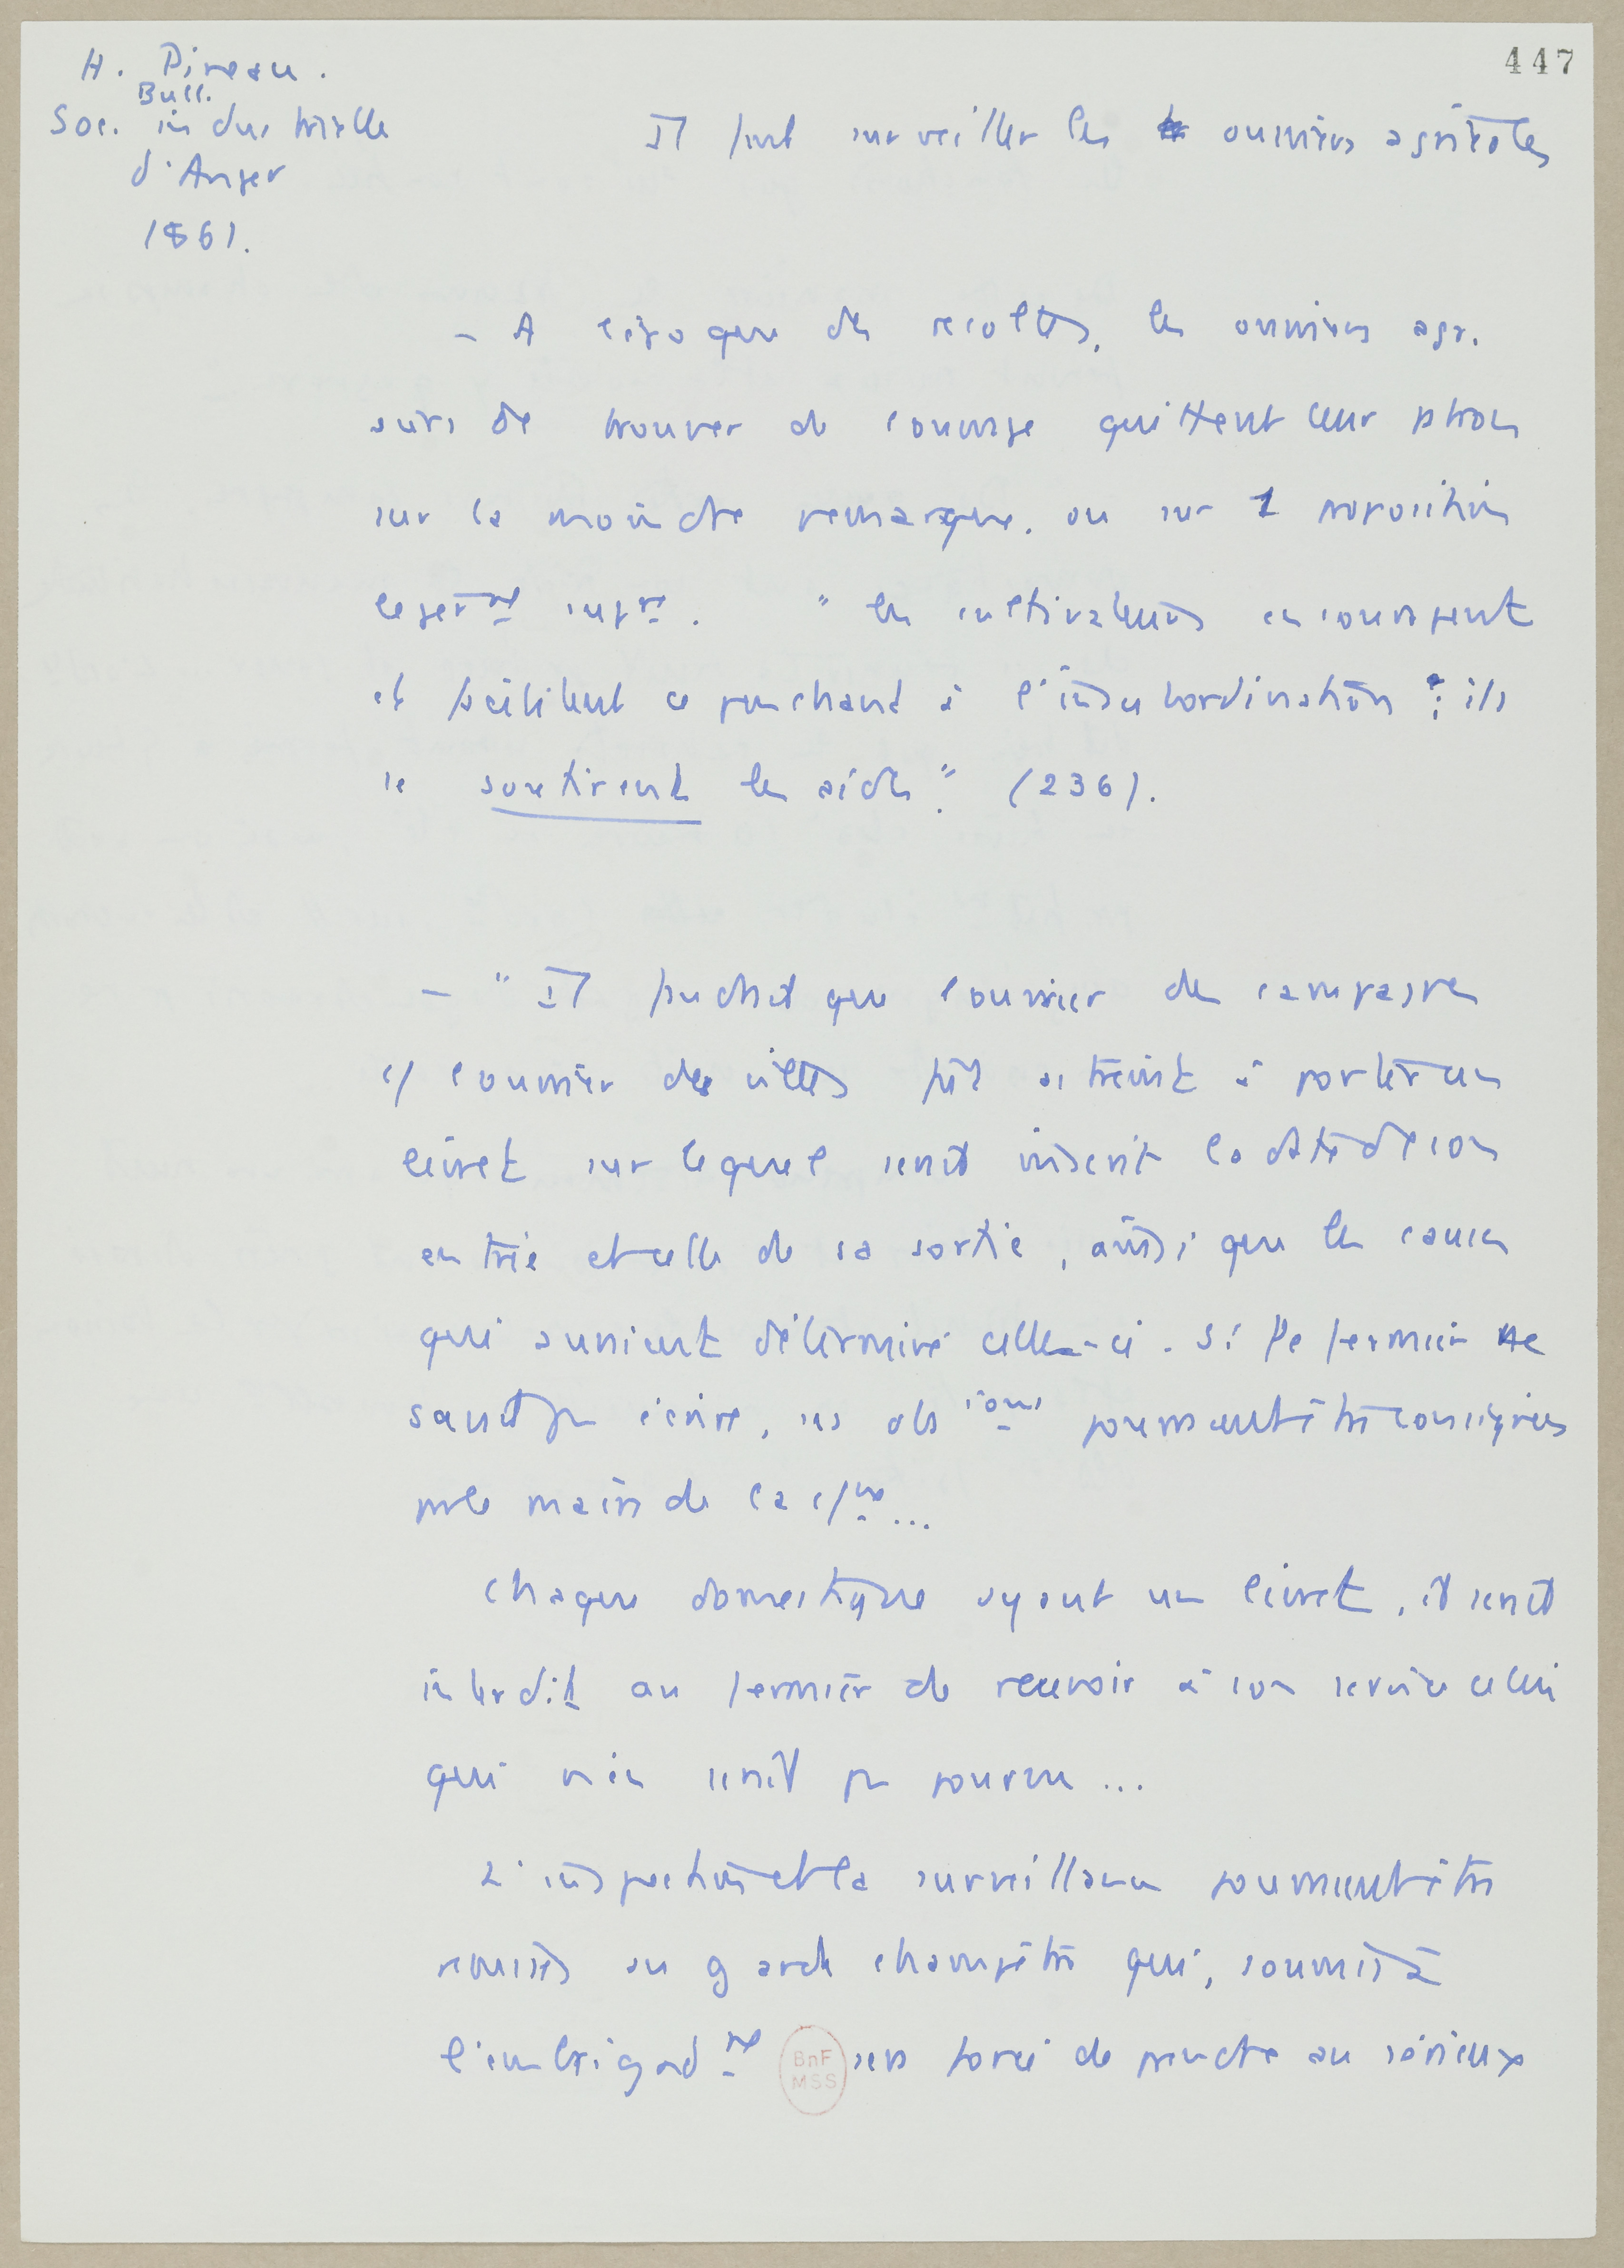 447
H. Pineau.
Bull.
Soc. industrielle
d'Anger
1861.
Il faut surveiller les ouvriers agricoles
- A l'époque des récoltes, les ouvriers agr.
sûrs de trouver de l'ouvrage quittent leur patron
sur la moindre remarque, ou sur 1 proposition
légèrmt supre. "les cultivateurs encouragent
et facilitent ce penchant à l'insubordination : ils
se soutirent les aides." (236).
- "Il faudrait que l'ouvrier des campagnes
c/ l'ouvrier des villes fût astreint à porter un
livret sur lequel serait inscrit la date de son
entrée et celle de sa sortie, ainsi que les causes
qui auraient déterminé celle-ci. Si le fermier ne
savait pas écrire, ses obsions pourraient être consignées
par le maire de la cne...
Chaque domestique ayant un livret, il serait
interdit au fermier de recevoir à son service celui
qui n'en serait pas pourvu...
L'inspection et la surveillance pourraient être
remises au garde champêtre qui, soumis à
l'embrigadmt sera forcé de prendre au sérieux
BnF
MSS